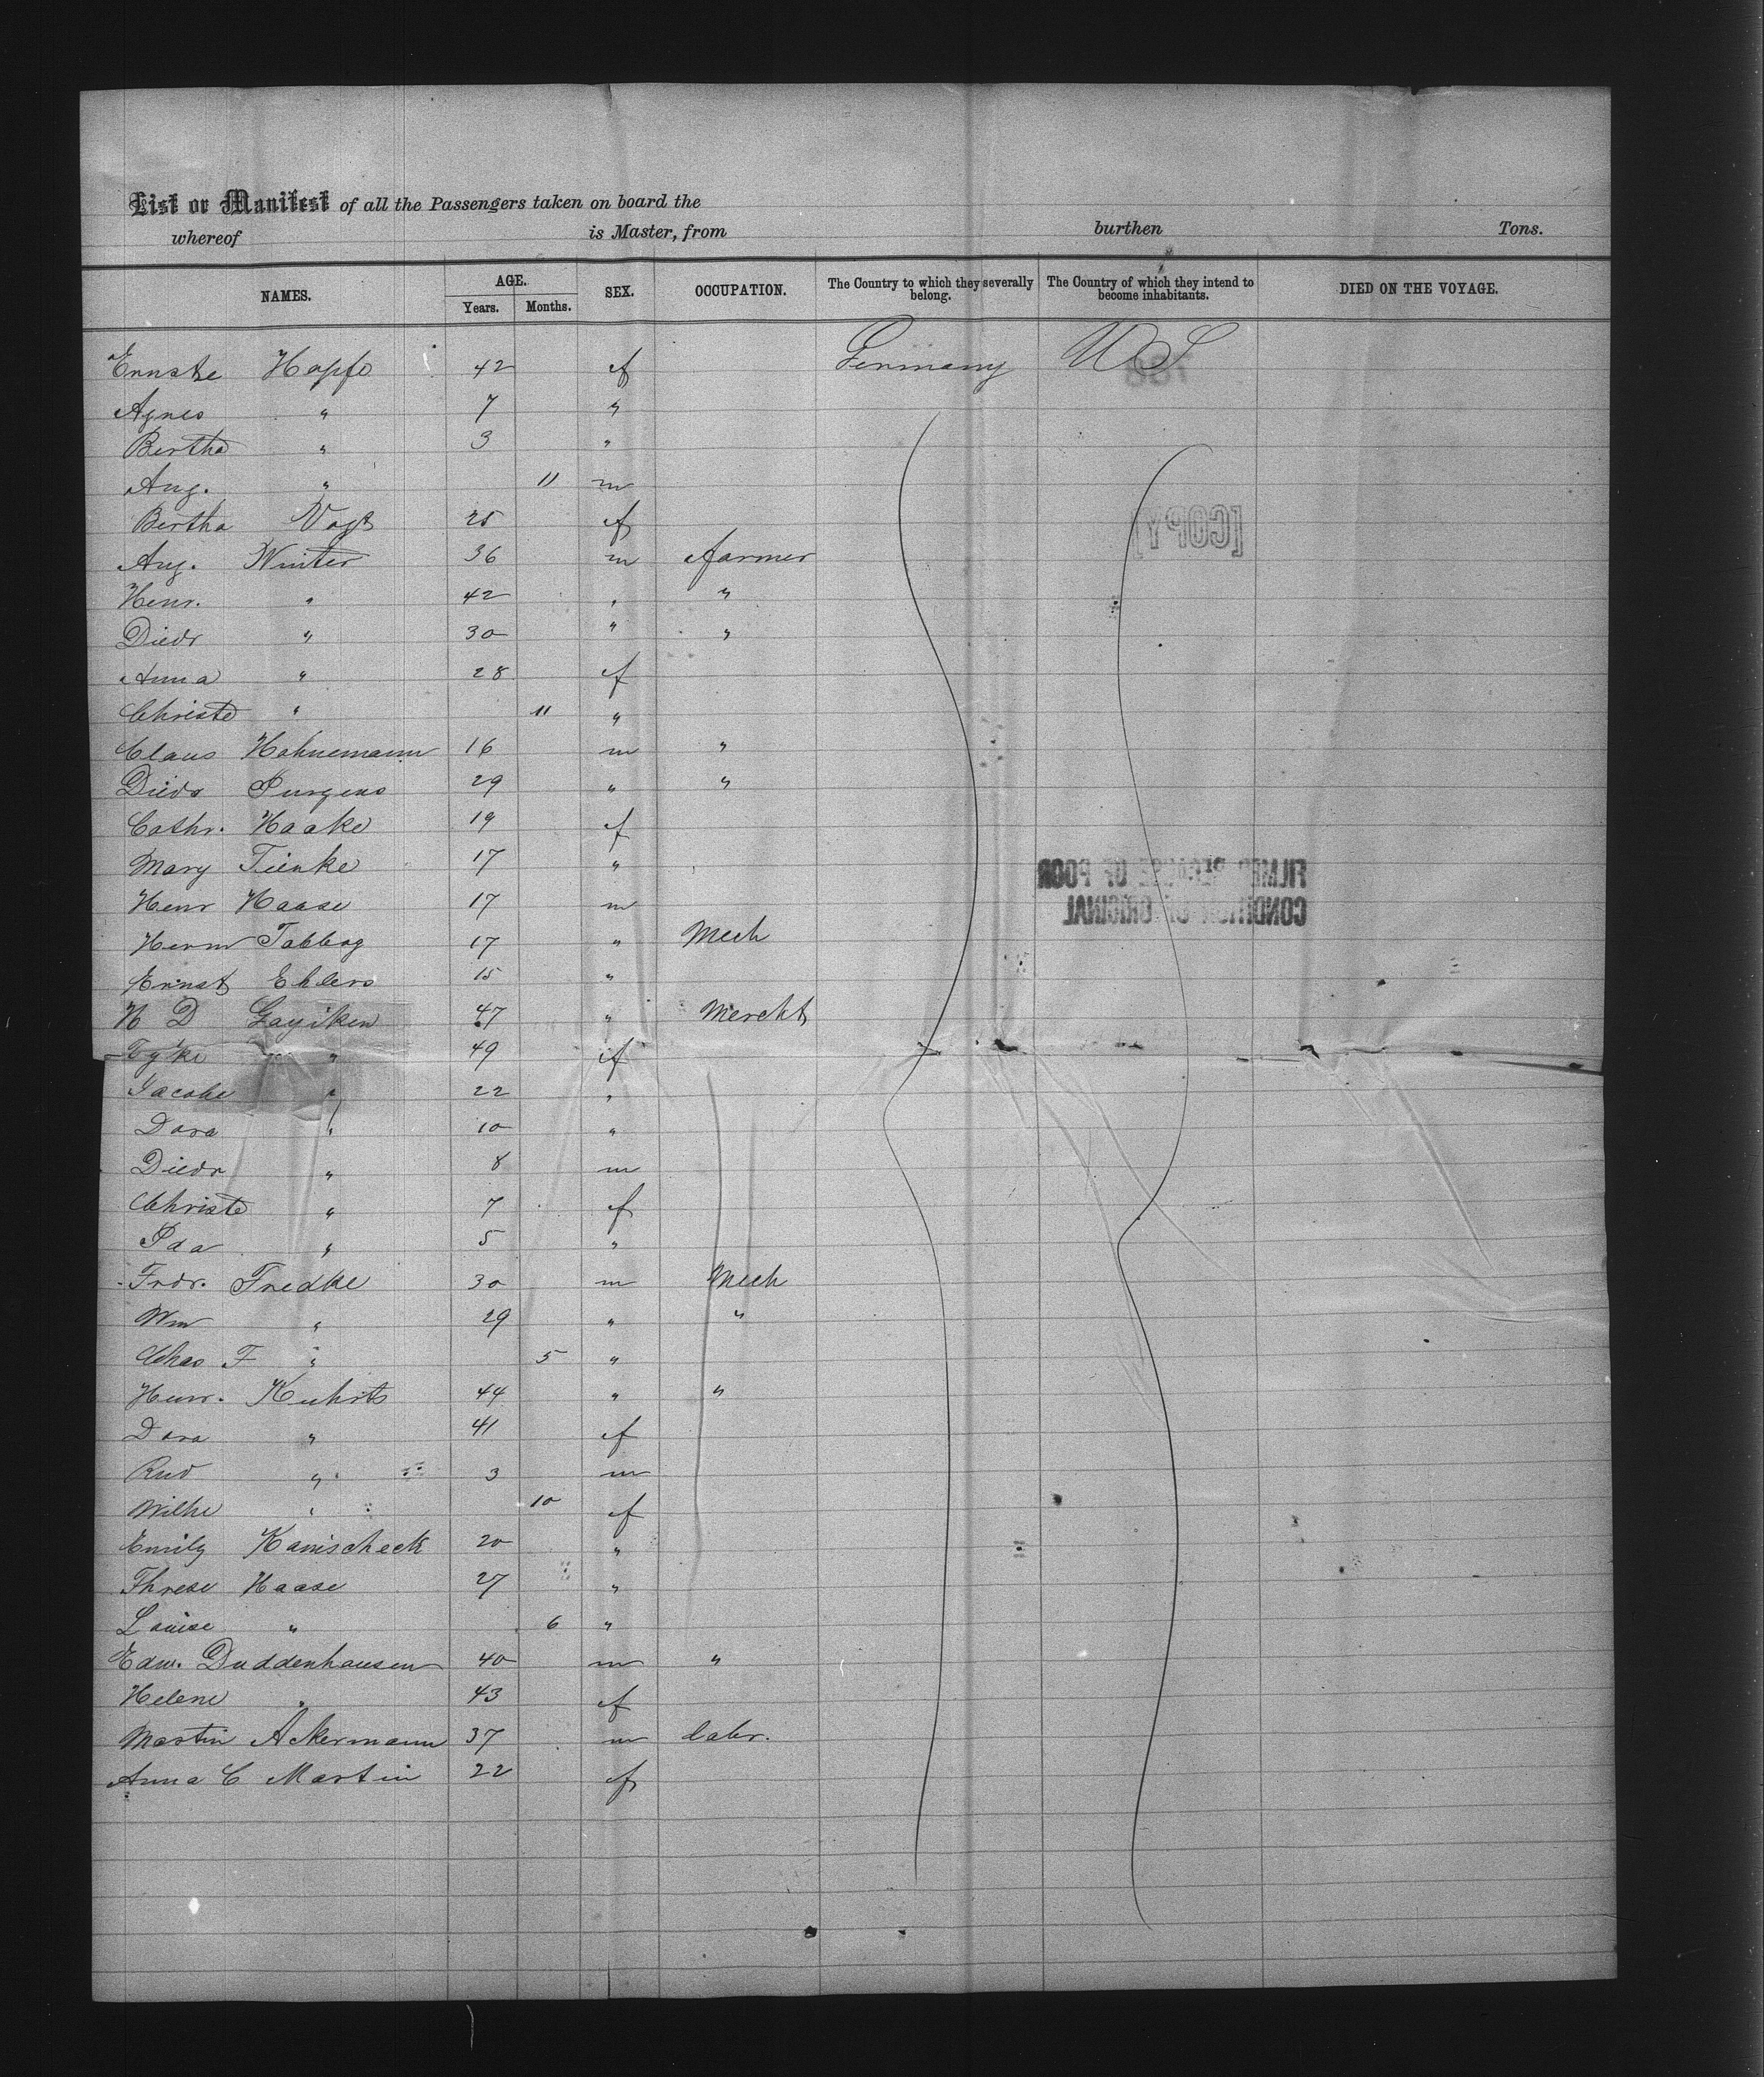 List or Manifest of all the Passengers taken on board the
whereof is Master, from burthen Tons.
NAMES. AGE. SEX. OCCUPATION. The Country to which they severally belong. The Country of which they intend to become inhabitants. DIED ON THE VOYAGE.
Years. Months.
Ernste Hopfe 42 f Germany US
Agnes " 7 "
Bertha " 3 "
Aug. " 11 m
Bertha Vogt 25 f
[COPY]
Aug. Winter 36 m farmer
Henr. " 42 " "
Diedr " 30 " "
Anna " 28 f
Christe " 11 "
Claus Hahnemann 16 m "
Diedr Jurgens 29 " "
Cathr. Haake 19 f
Mary Tienke 17 "
FILMED BECAUSE OF POOR
CONDITION OF ORIGINAL
Henr Haase 17 m
Herm 17 " Mech
Ernst Ehlers 15 "
H D Gayiken 47 " Mercht
49 f
Jacobe " 22 "
Dora " 10 "
Diedr " 8 m
Christe " 7 f
Ida " 5 "
Frdr. Fredke 30 m Mech
Wm " 29 " "
Chas F " 5 "
Henr. Kuhrts 44 " "
Dora " 41 f
Rud " 3 m
Wilhe " 10 f
Emily Kanischeck 20 "
Threse Haase 27 "
Louise " 6 "
Edw. Duddenhausen 40 m "
Helene " 43 f
Martin Ackermann 37 m labr.
Anna C Martin 22 f